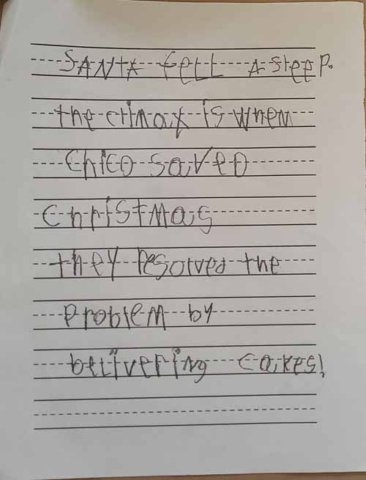 SANTA fell A sleep.
the climax is when
Chico saved
Christmas
they resolved the
problem by
beliivering cakes!